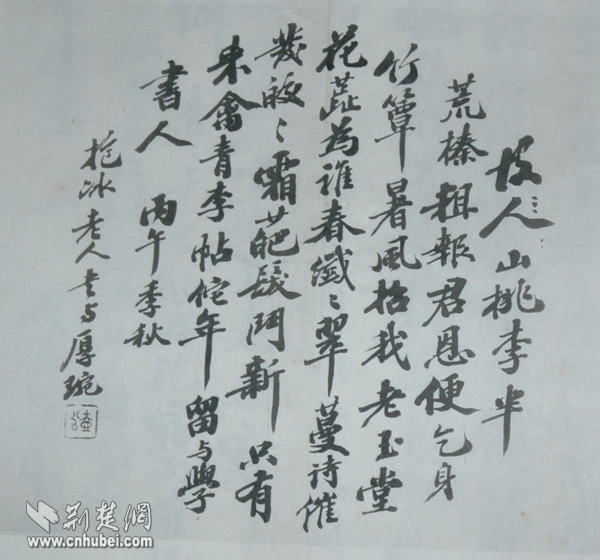 故人山桃李半
荒榛粗報君恩便乞身
竹簟暑風招我老玉堂
花蕋為誰春纖〻翠蔓詩催
發皪〻霜葩髮鬥新只有
来禽青李帖佗年留与學
書人 丙午季秋
抱冰老人書与厚琬
荆楚網
www.cnhubei.com